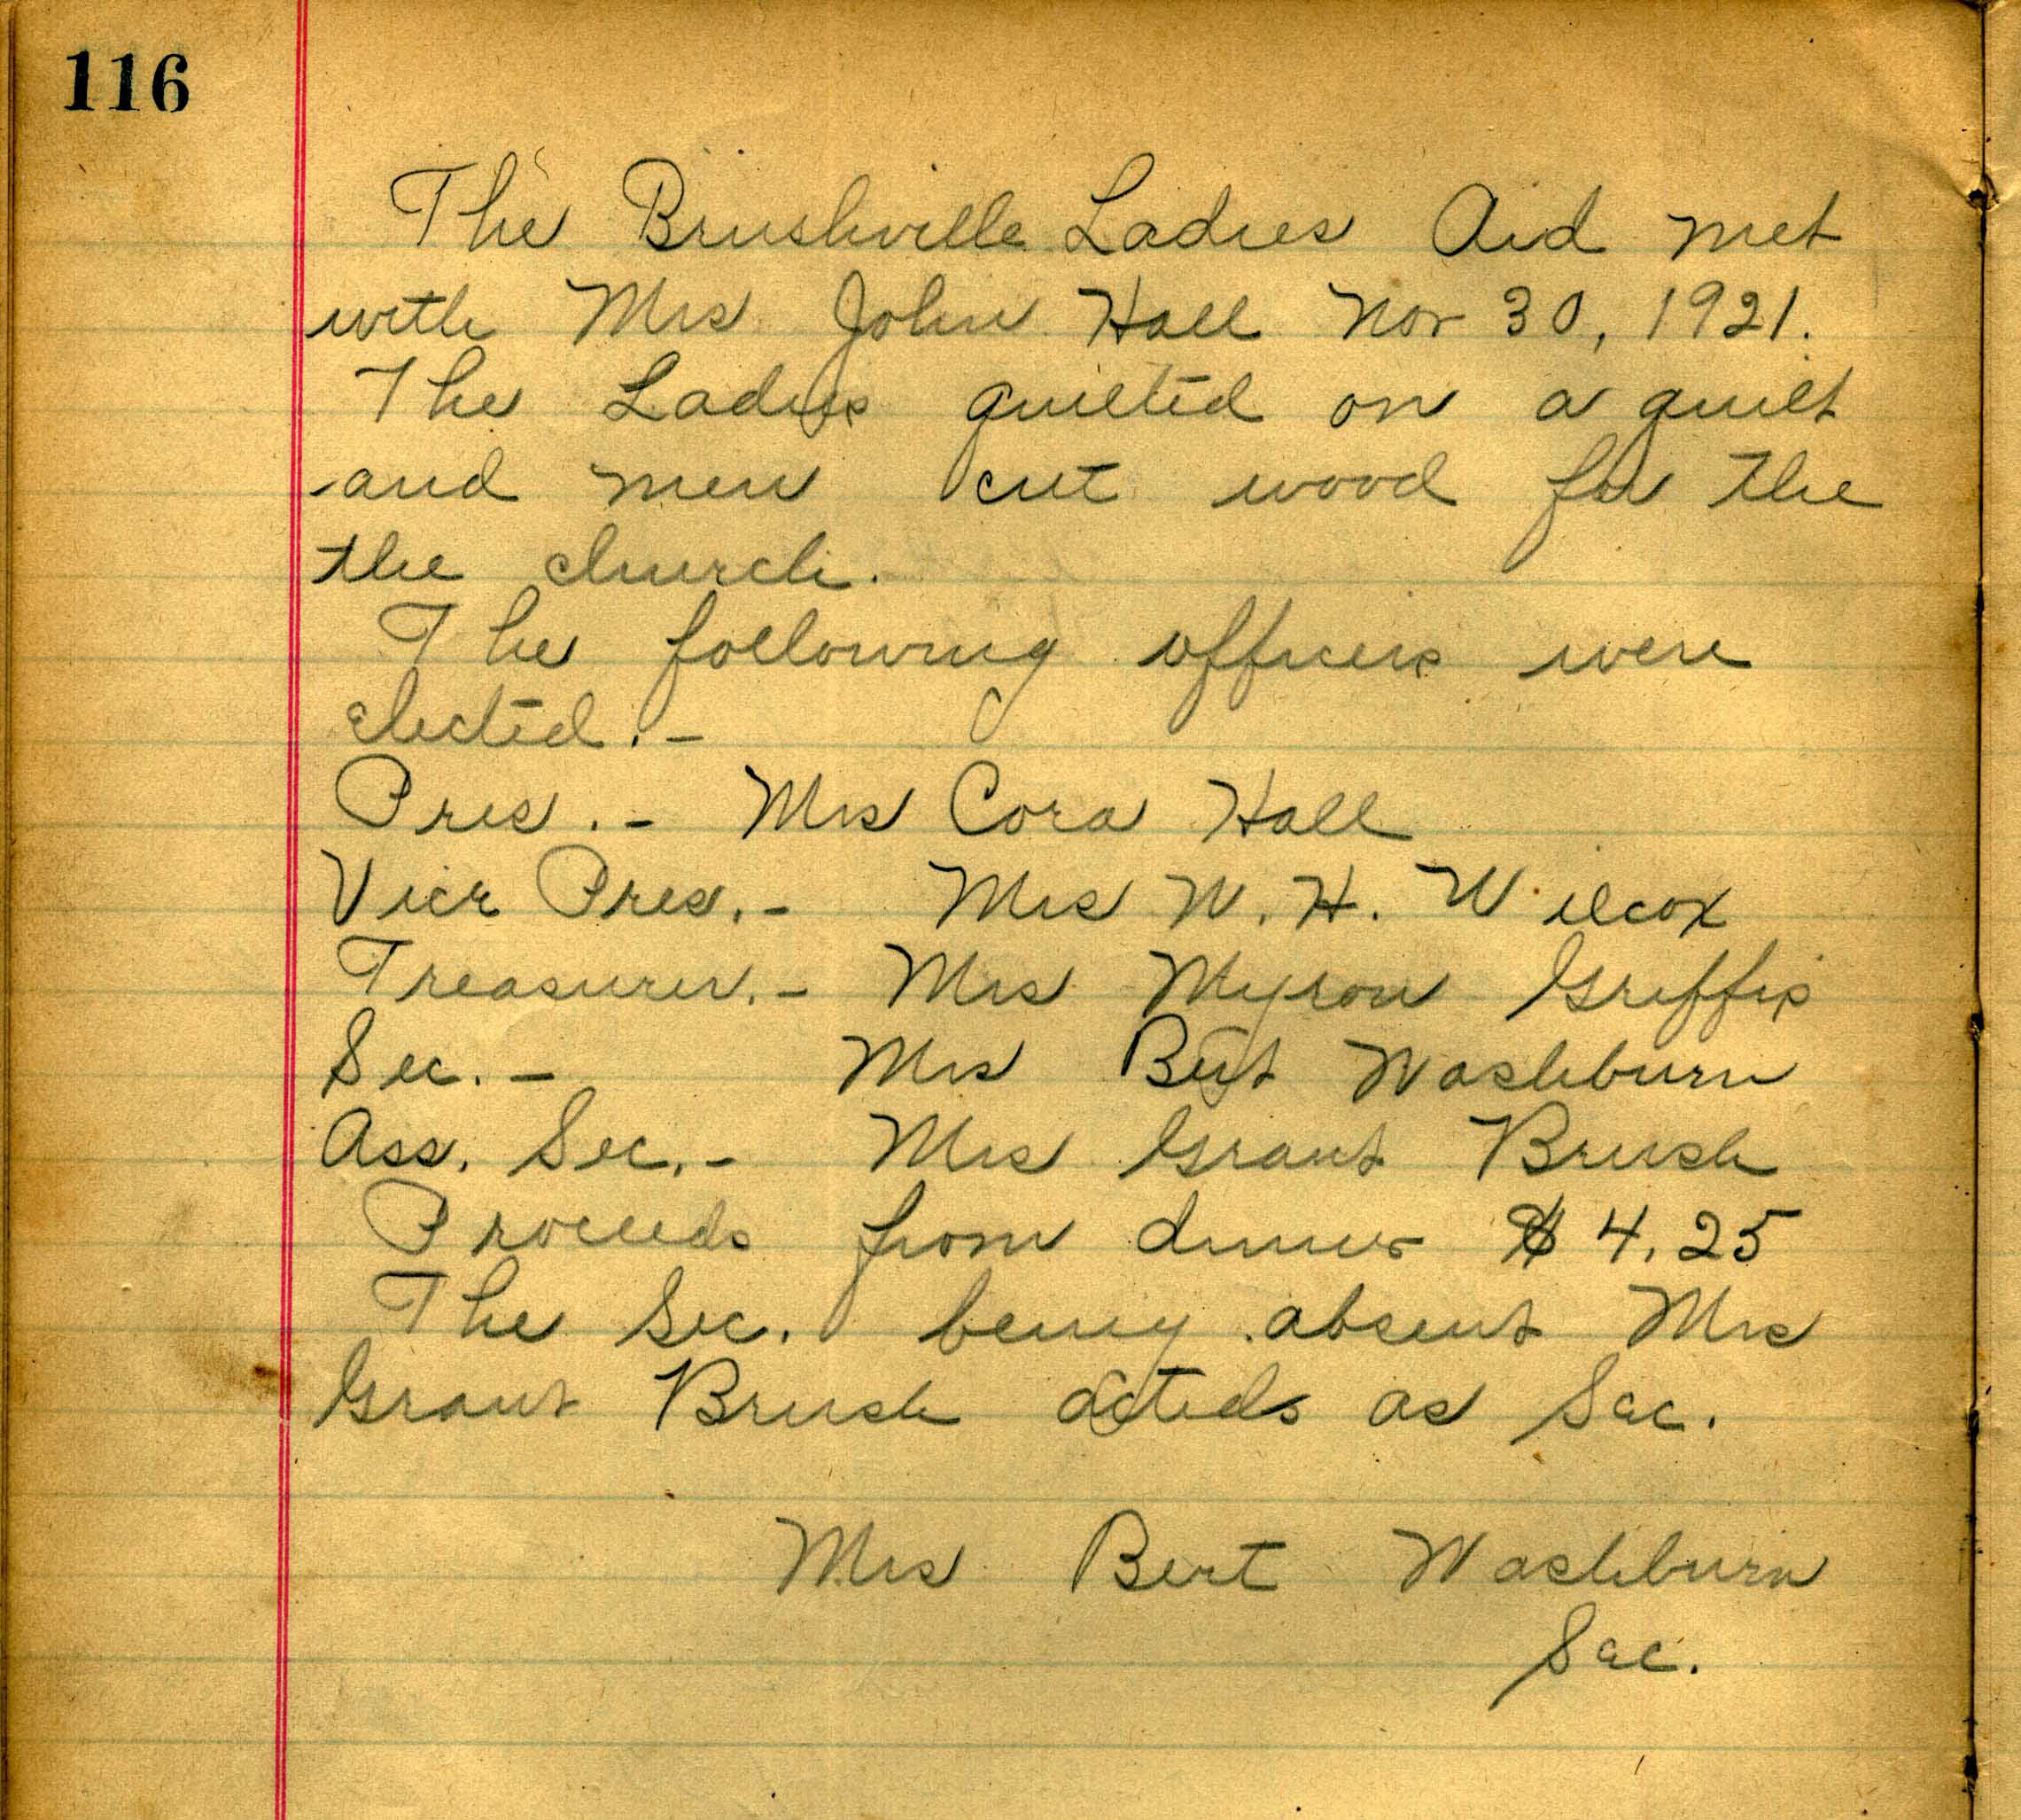 116
The Brushville Ladies Aid met
with Mrs John Hall Nov 30, 1921.
The Ladies quilted on a quilt
and men cut wood for the
the church.
The following officers were
elected.-
Pres.- Mrs Cora Hall
Vice Pres.- Mrs W. H. Wilcox
Treasurer.- Mrs Myron Griffis
Sec.- Mrs Bert Washburn
Ass. Sec.- Mrs Grant Brush
Proceeds from dinner $4.25
The Sec. being absent Mrs
Grant Brush acteds as Sec.
Mrs Bert Washburn
Sec.